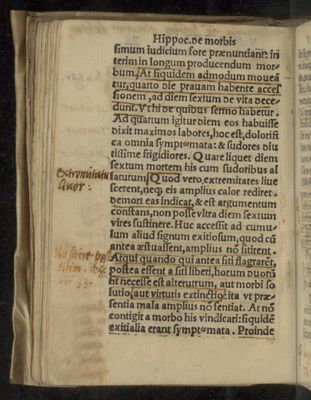 Hippoc. de morbis
simum iudicium fore prænuntiant: in
terim in longum producendum mor
bum. At siquidem admodum mouea
tur, quarto die prauam habente acces
sionem, ad diem sextum de vita dece
dunt. Vt hi de quibus sermo habetur.
Ad quartum igitur diem eos habuisse
dixit maximos labores, hoc est, dolorifi
ca omnia symptωmata: & sudores diu
tissime frigidiores. Quare liquet diem
sextum mortem his cum sudoribus al
laturum. Quod vero, extremitates liue
scerent, neq; eis amplius calor rediret.
demori eas indicat, & est argumentum
constans, non posse vltra diem sextum
vires sustinere. Huc accessit ad cumu
lum aliud signum exitiosum, quod cū
antea æstuassent, amplius nō sitirent.
Atqui quando qui antea siti flagrarēt,
postea essent a siti liberi, horum duorū
fit necesse est alterutrum, aut morbi so
lutio, aut virtutis extinctio, ita vt præ-
sentia mala amplius nō sentiat. At nō
contigit a morbo his vindicari: siquidē
exitialia erant symptωmata. Proinde
liuor: